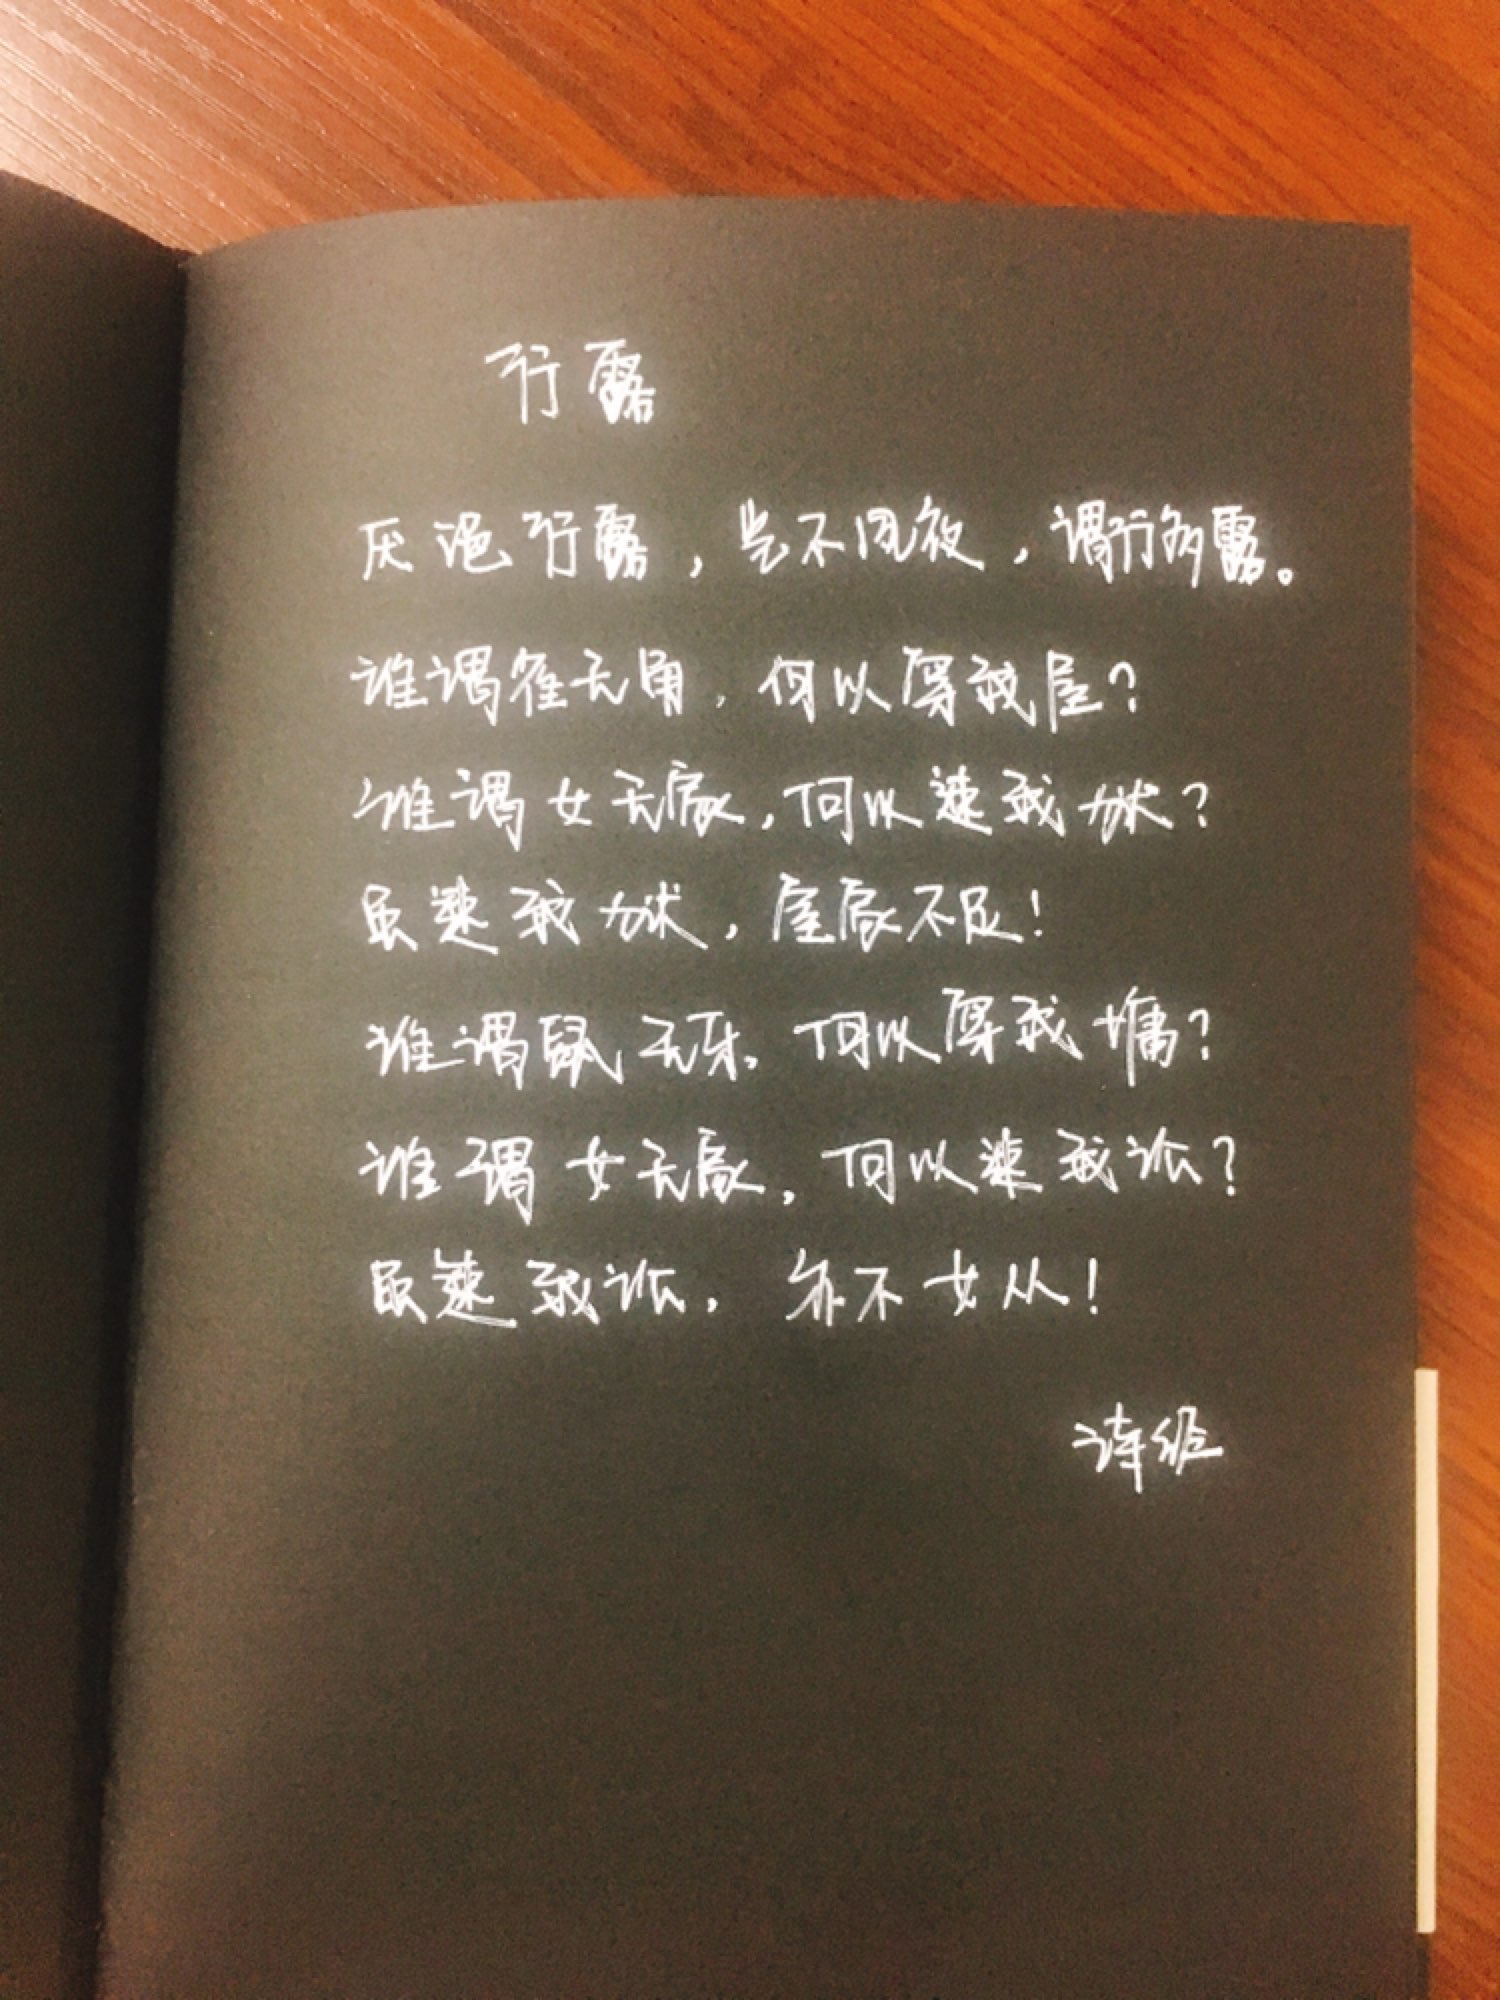 行露
厌浥行露，岂不夙夜，谓行多露。
谁谓雀无角，何以穿我屋？
谁谓女无家，何以速我狱？
虽速我狱，室家不足！
谁谓鼠无牙，何以穿我墉？
谁谓女无家，何以速我讼？
虽速我讼，亦不女从！
诗经